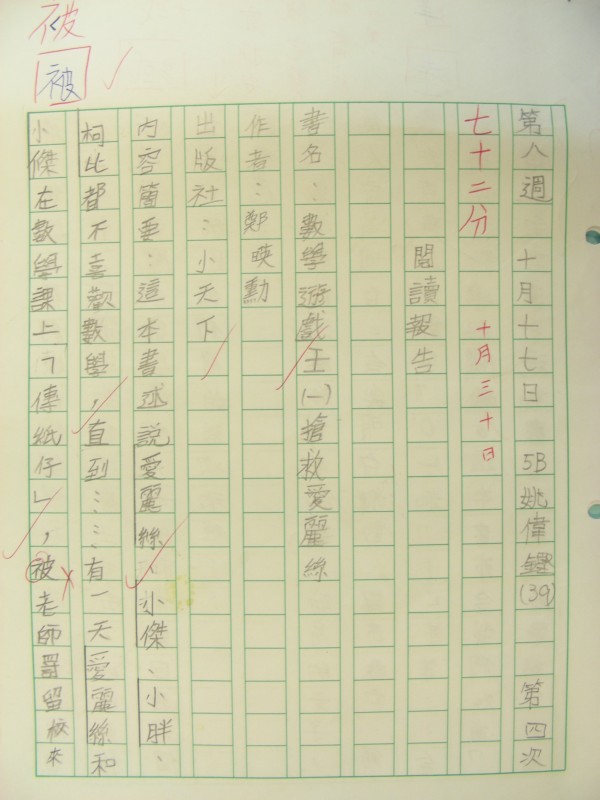 第八週 十月十七日 5B 姚偉鏗(39) 第四次
七十二分 十月三十日
閱讀報告
書名：數學遊戲王(一)搶救愛麗絲
作者：鄭暎勳
出版社：小天下
內容簡要：這本書述說愛麗絲、小傑、小胖、
柯比都不喜歡數學，直到……有一天愛麗絲和
小傑在數學課上「傳紙仔」，被老師罰留校來
被
被